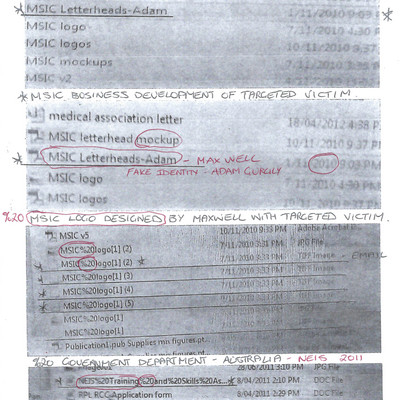 MSIC Letterheads-Adam 1/11/2010 9:03 P
MSIC logo 7/11/2010 4:30 P
MSIC logos 10/11/2010 9:37
MSIC mockups
MSIC v2
* MSIC BUSINESS DEVELOPMENT OF TARGETED VICTIM.
medical association letter 18/04/2012 4:38 P
MSIC letterhead mockup 10/11/2010 9:37 P
MSIC Letterheads-Adam - MAXWELL 1/11/2010 9:03 P
FAKE IDENTITY - ADAM
MSIC logo 7/11/2010 4:30 PM
MSIC logos
%20 MSIC LOGO DESIGNED BY MAXWELL WITH TARGETED VICTIM.
MSIC v5 10/11/2010 9:33 PM Adobe Acrobat
MSIC%20logo[1] (2) 7/11/2010 3:31 PM JPG File
MSIC%20logo[1] (2) * 7/11/2010
MSIC%20logo[1] (3) 7/11/2010 3:33 PM
MSIC%20logo[1] (4) 7/11/2010
MSIC%20logo[1] (5) 7/11/2010
MSIC%20logo[1]
MSIC%20logo[1]
Publication1.pub Supplies mis figures.pt
%20 GOVERNMENT DEPARTMENT - AUSTRALIA - NEIS 2011
28/06/2011 3:10 PM JPG File
NEIS%20Training%20and%20Skills%20As... 8/04/2011 2:10 PM DOC File
RPL RCC-Application form 8/04/2011 2:29 PM DOC File